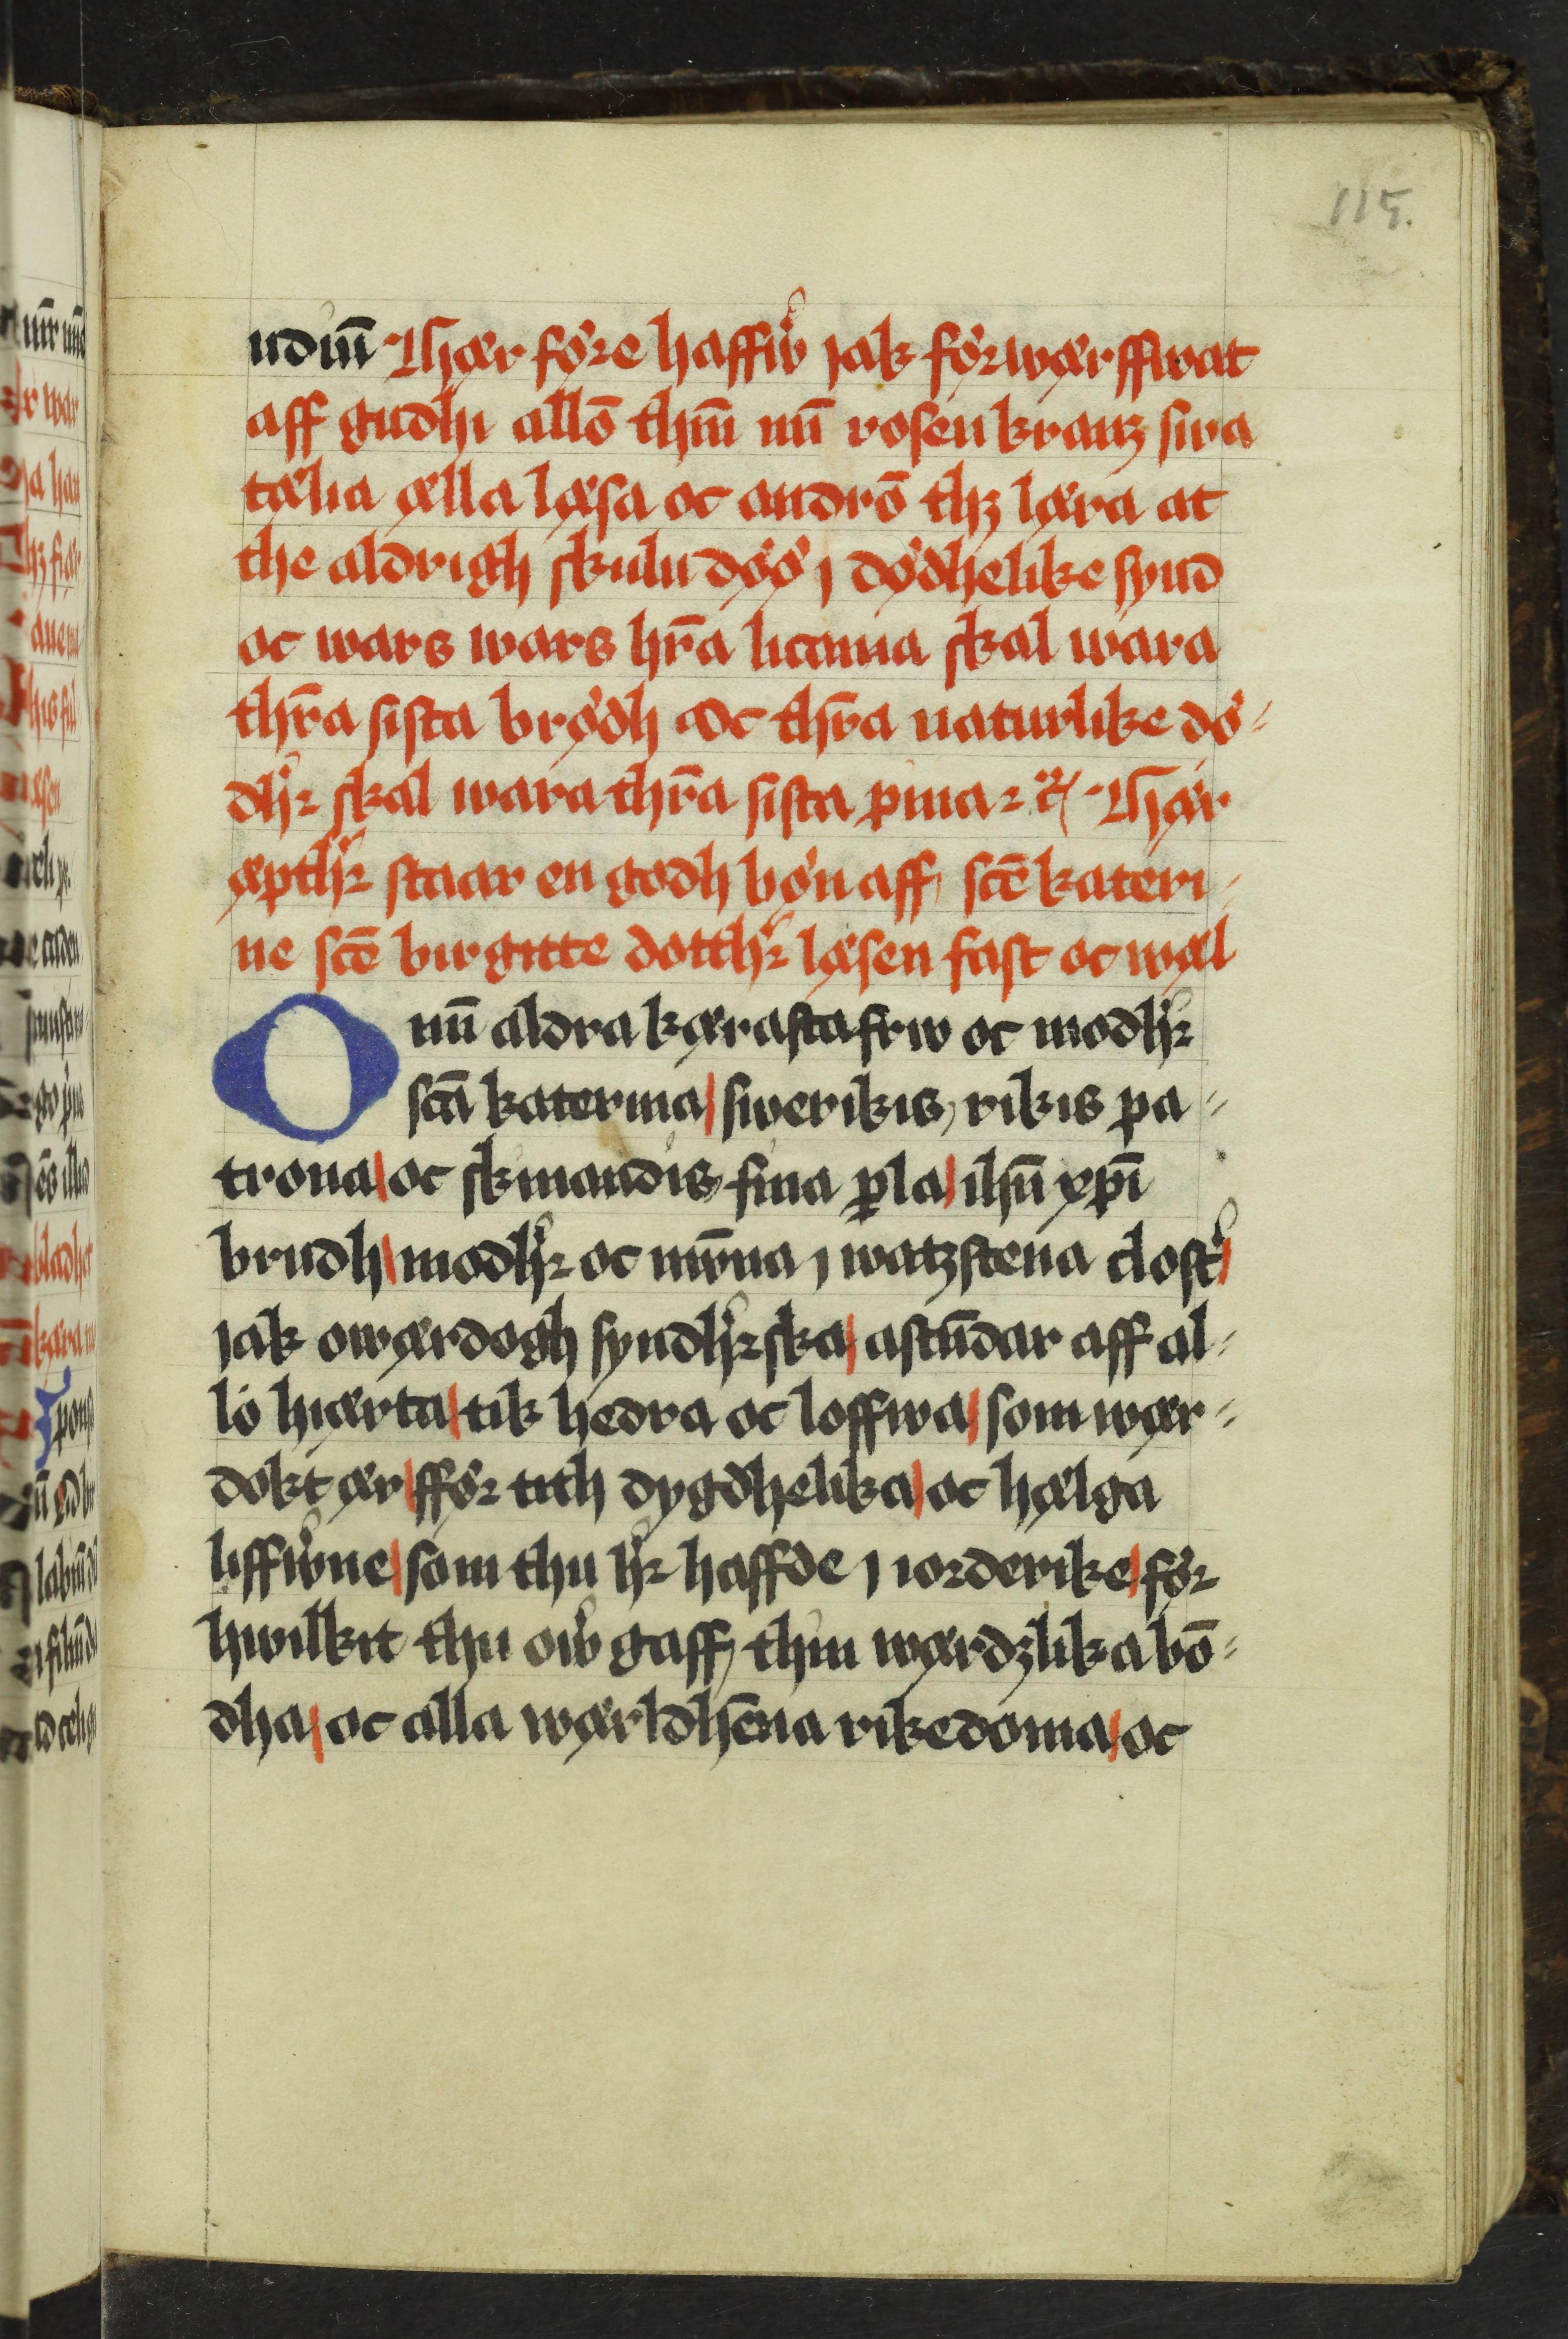 115.
ndiū Thær føre haffwͬ jak førwærffwat
aff gudhi allō thm̄ mī rosen kranz swa
tælia ælla læsa oc androm̄ thz læra at
the aldrigh skulu døø j dødhelike synd
oc wars wars hr̄a licama skal wara
thr̄a sista brødh Oc thr̄a naturlike dø-
dhr skal wara thr̄a sista pina ⁊ c̄ Thær
æpthr staar en godh bøn aff scē kateri-
ne scē birgitte dotthr læsen fast oc wæl
O mī aldra kærasta frw oc modhr
scā katerina swerikis rikis pa-
trona oc skinandis fina pla ihū xpī
brudh modhr oc mw̄na j watzstena clostͬ
jak owærdogh syndhrska astūdar aff al-
lo hiærta tik hedra oc loffwa som wær-
dokt ær ffør tith dygdhelika oc hælga
liffwͬne som thu hr haffde j iorderike før
hwilkit thu owͬgaff thin wærdzlika bō-
dha oc alla wærldhēna rikedoma oc